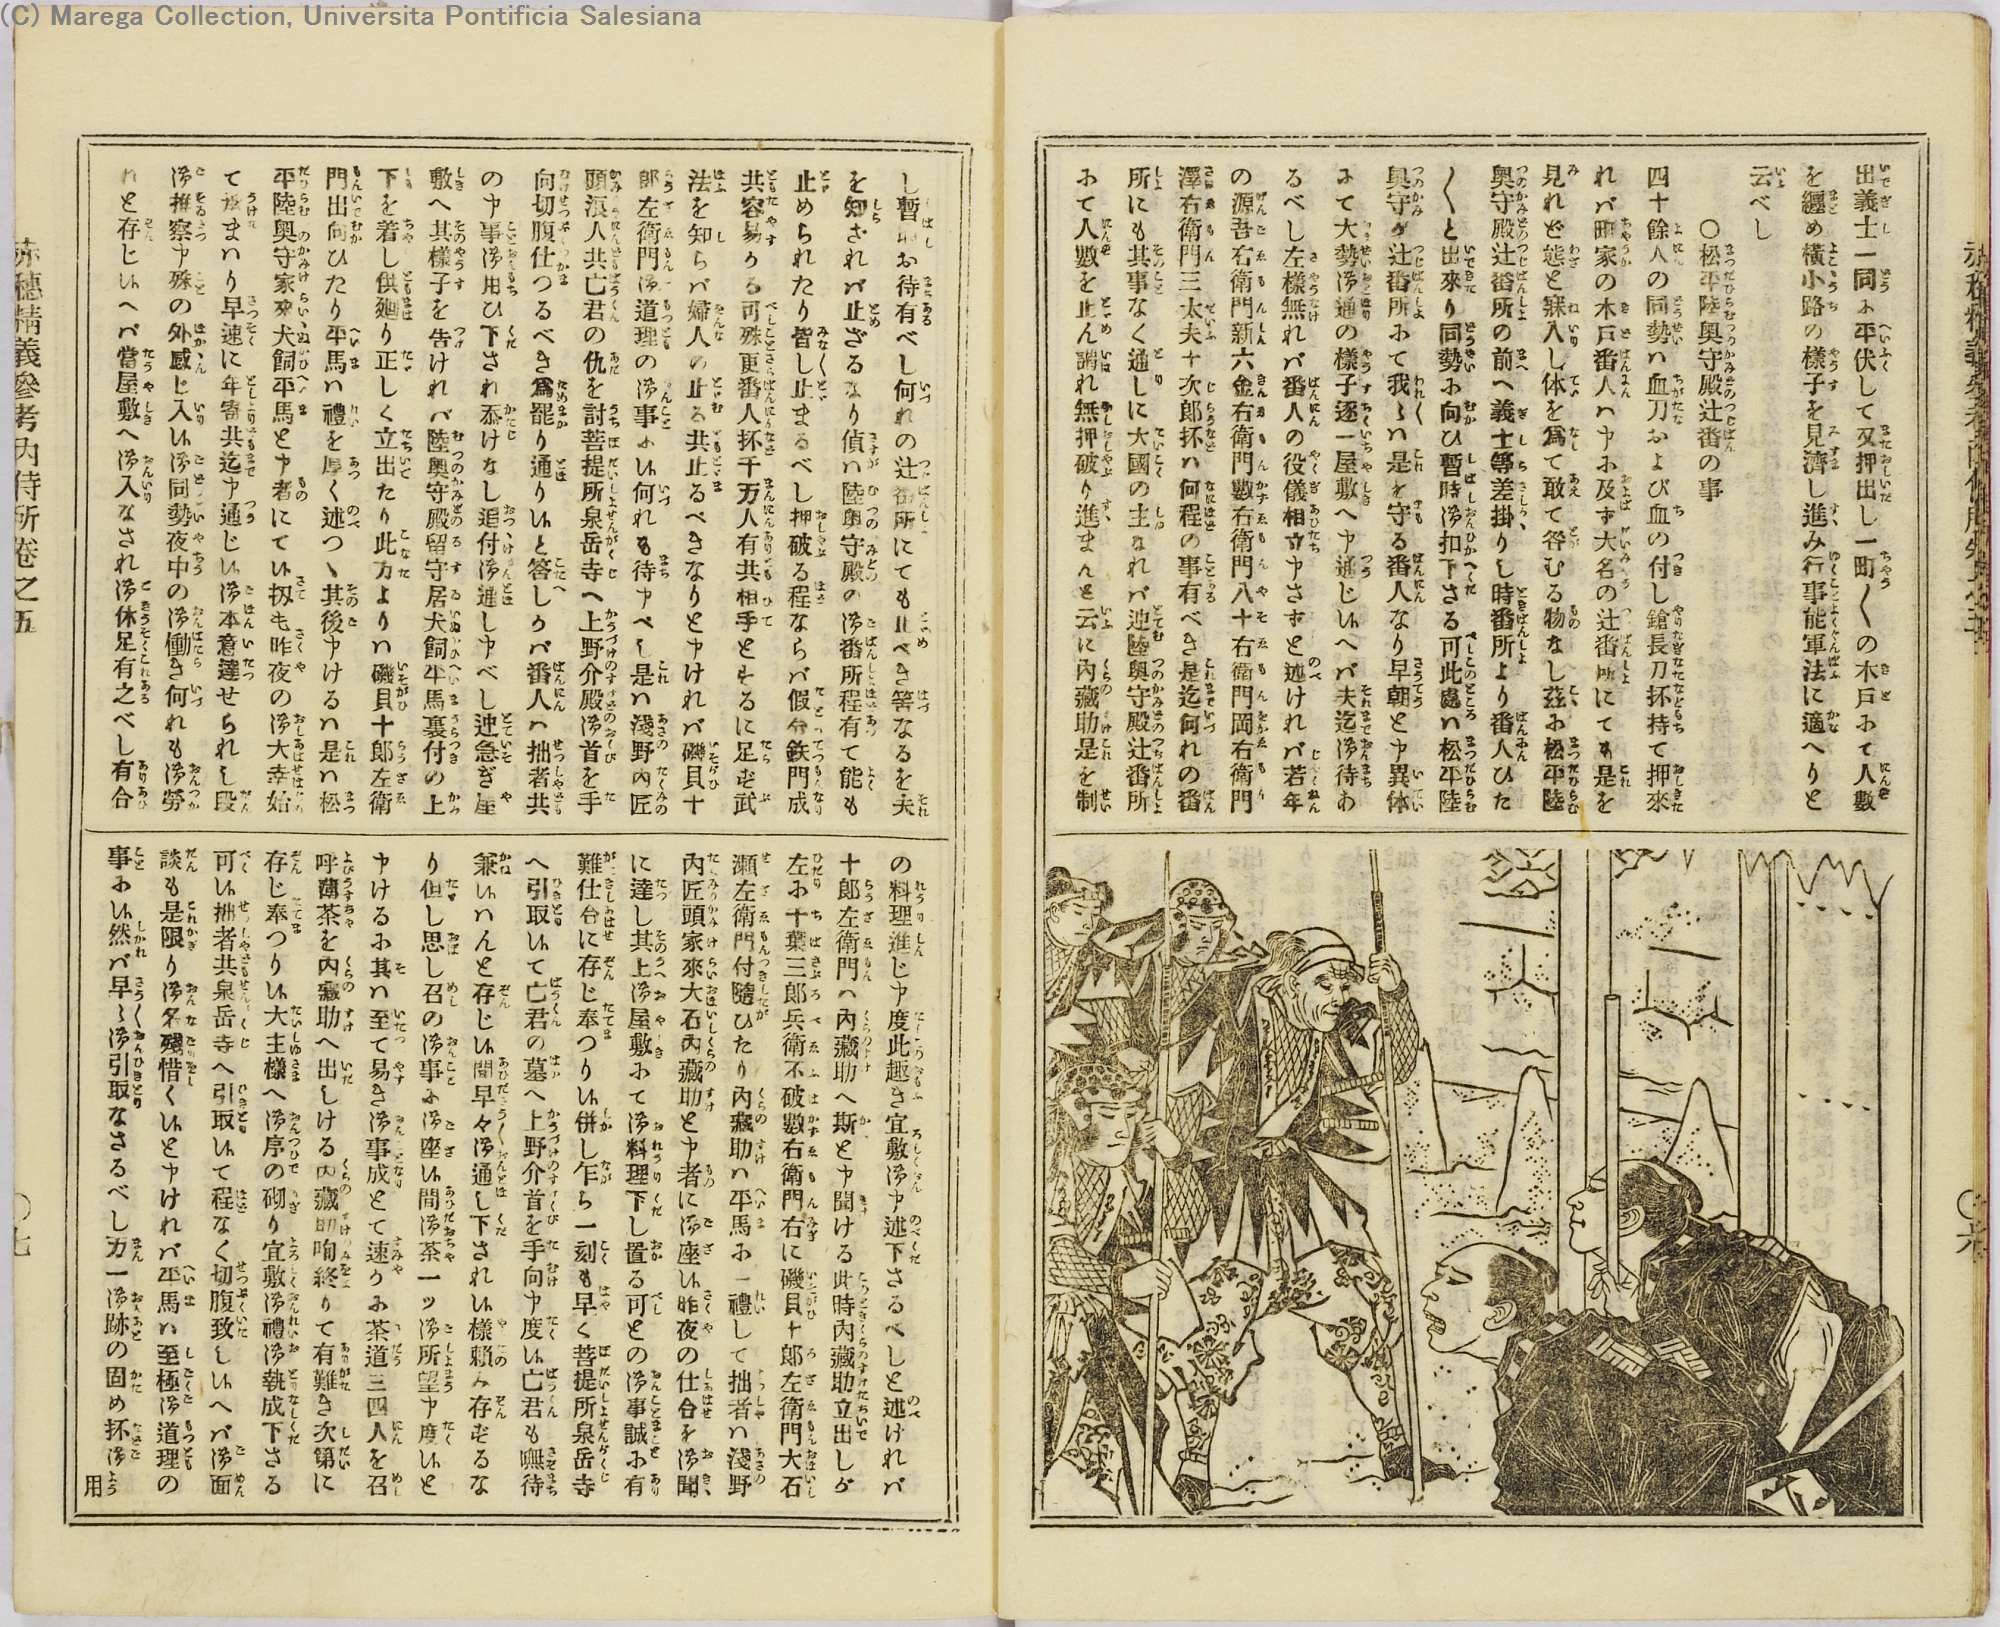 (C) Marega Collection, Universita Pontificia Salesiana
出義士一同に平伏して又押出し一町〱の木戸にて人數
を纒め横小路の樣子を見濟し進み行事能軍法に適へりと
云べし
〇松平陸奥守殿辻番の事
四十餘人の同勢ハ血刀および血の付し鎗長刀抔持て押來
れバ町家の木戸番人ハ申に及ず大名の辻番所にても是を
見れど態と寐入し体を爲て敢て咎むる物なし茲に松平陸
奥守殿辻番所の前へ義士等差掛りし時番所より番人ひた
〱と出來り同勢に向ひ暫時御扣下さる可此處ハ松平陸
奥守が辻番所にて我々ハ是を守る番人なり早朝と申異体
にて大勢御通の樣子逐一屋敷へ申通じいへバ夫迄御待わ
るべし左樣無れバ番人の役儀相立申さずと述けれバ若年
の源吾右衛門新六金右衛門數右衛門八十右衛門岡右衛門
澤右衛門三太夫十次郎抔ハ何程の事有べき是迄何れの番
所にも其事なく通しに大國の主なれバ迚陸奥守殿辻番所
にて人數を止ん謂れ無押破り進まんと云に内藏助是を制
赤穗精義參考内侍所卷之五
〇六
し暫しお待有べし何れの辻番所にても止べき筈なるを夫
を知ざれバ止ざるなり偵ハ陸奥守殿の御番所程有て能も
止められたり皆し止まるべし押破る程ならバ假令鉄門成
共容易りる可殊更番人抔千万人有共相手とするに足ず武
法を知らバ婦人の止る共止るべきなりと申けれバ磯貝十
郎左衛門御道理の御事にい何れも待申べし是ハ淺野内匠
頭浪人共亡君の仇を討菩提所泉岳寺へ上野介殿御首を手
向切腹仕つるべき爲罷り通りいと答しかバ番人ハ拙者共
の申事御用ひ下され忝けなし追付御通し申べし迚急ぎ屋
敷へ其樣子を告けれバ陸奥守殿留守居犬飼平馬裏付の上
下を着し供廻り正しく立出たり此方よりハ磯貝十郎左衛
門出向ひたり平馬ハ禮を厚く述つヽ其後申けるハ是ハ松
平陸奥守家來犬飼平馬と申者にてい扨も昨夜の御大幸始
て承まハり早速に年寄共迄申通じい御本意達せられし段
御推察申殊の外感じ入い御同勢夜中の御働き何れも御勞
れと存じいへバ當屋敷へ御入なされ御休足有之べし有合
の料理進じ申度此趣き宜敷御申述下さるべしと述けれバ
十郎左衛門ハ内藏助へ斯と申聞ける此時内藏助立出しが
左に十葉三郎兵衛不破數右衛門右に磯貝十郎左衛門大石
瀬左衛門付隨ひたり内藏助ハ平馬に一禮して拙者ハ淺野
内匠頭家來大石内藏助と申者に御座い昨夜の仕合を御聞
に達し其上御屋敷にて御料理下し置る可との御事誠に有
難仕合に存じ奉つりい併し乍ら一刻も早く菩提所泉岳寺
へ引取いて亡君の墓へ上野介首を手向申度い亡君も嘸待
兼いハんと存じい間早々御通し下されい樣頼み存ずるな
り但し思し召の御事に御座い間御茶一ッ御所望申度いと
申けるに其ハ至て易き御事成とて速りに茶道三四人を召
呼薄茶を内藏助へ出しける内藏助喫終りて有難き次第に
存じ奉つりい大主樣へ御序の砌り宜敷御禮御執成下さる
可い拙者共泉岳寺へ引取いて程なく切腹致しいへバ御面
談も是限り御名殘惜くいと申けれバ平馬ハ至極御道理の
事にい然バ早々御引取なさるべし万一御跡の固め抔御用
赤穗精義參考内侍所卷之五
〇七